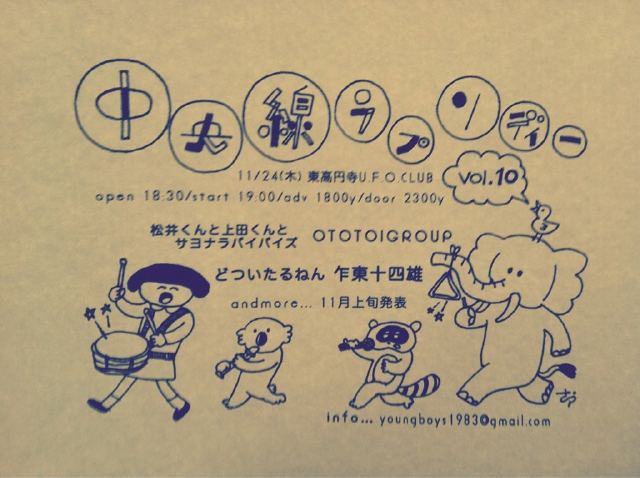 中央線ラプソディー
11/24(木) 東高円寺U.F.O.CLUB
vol.10
open 18:30/start 19:00/adv 1800y/door 2300y
松井くんと上田くんと
サヨナラバイバイズ OTOTOIGROUP
どついたるねん 乍東十四雄
andmore... 11月上旬発表
info... youngboys1983@gmail.com